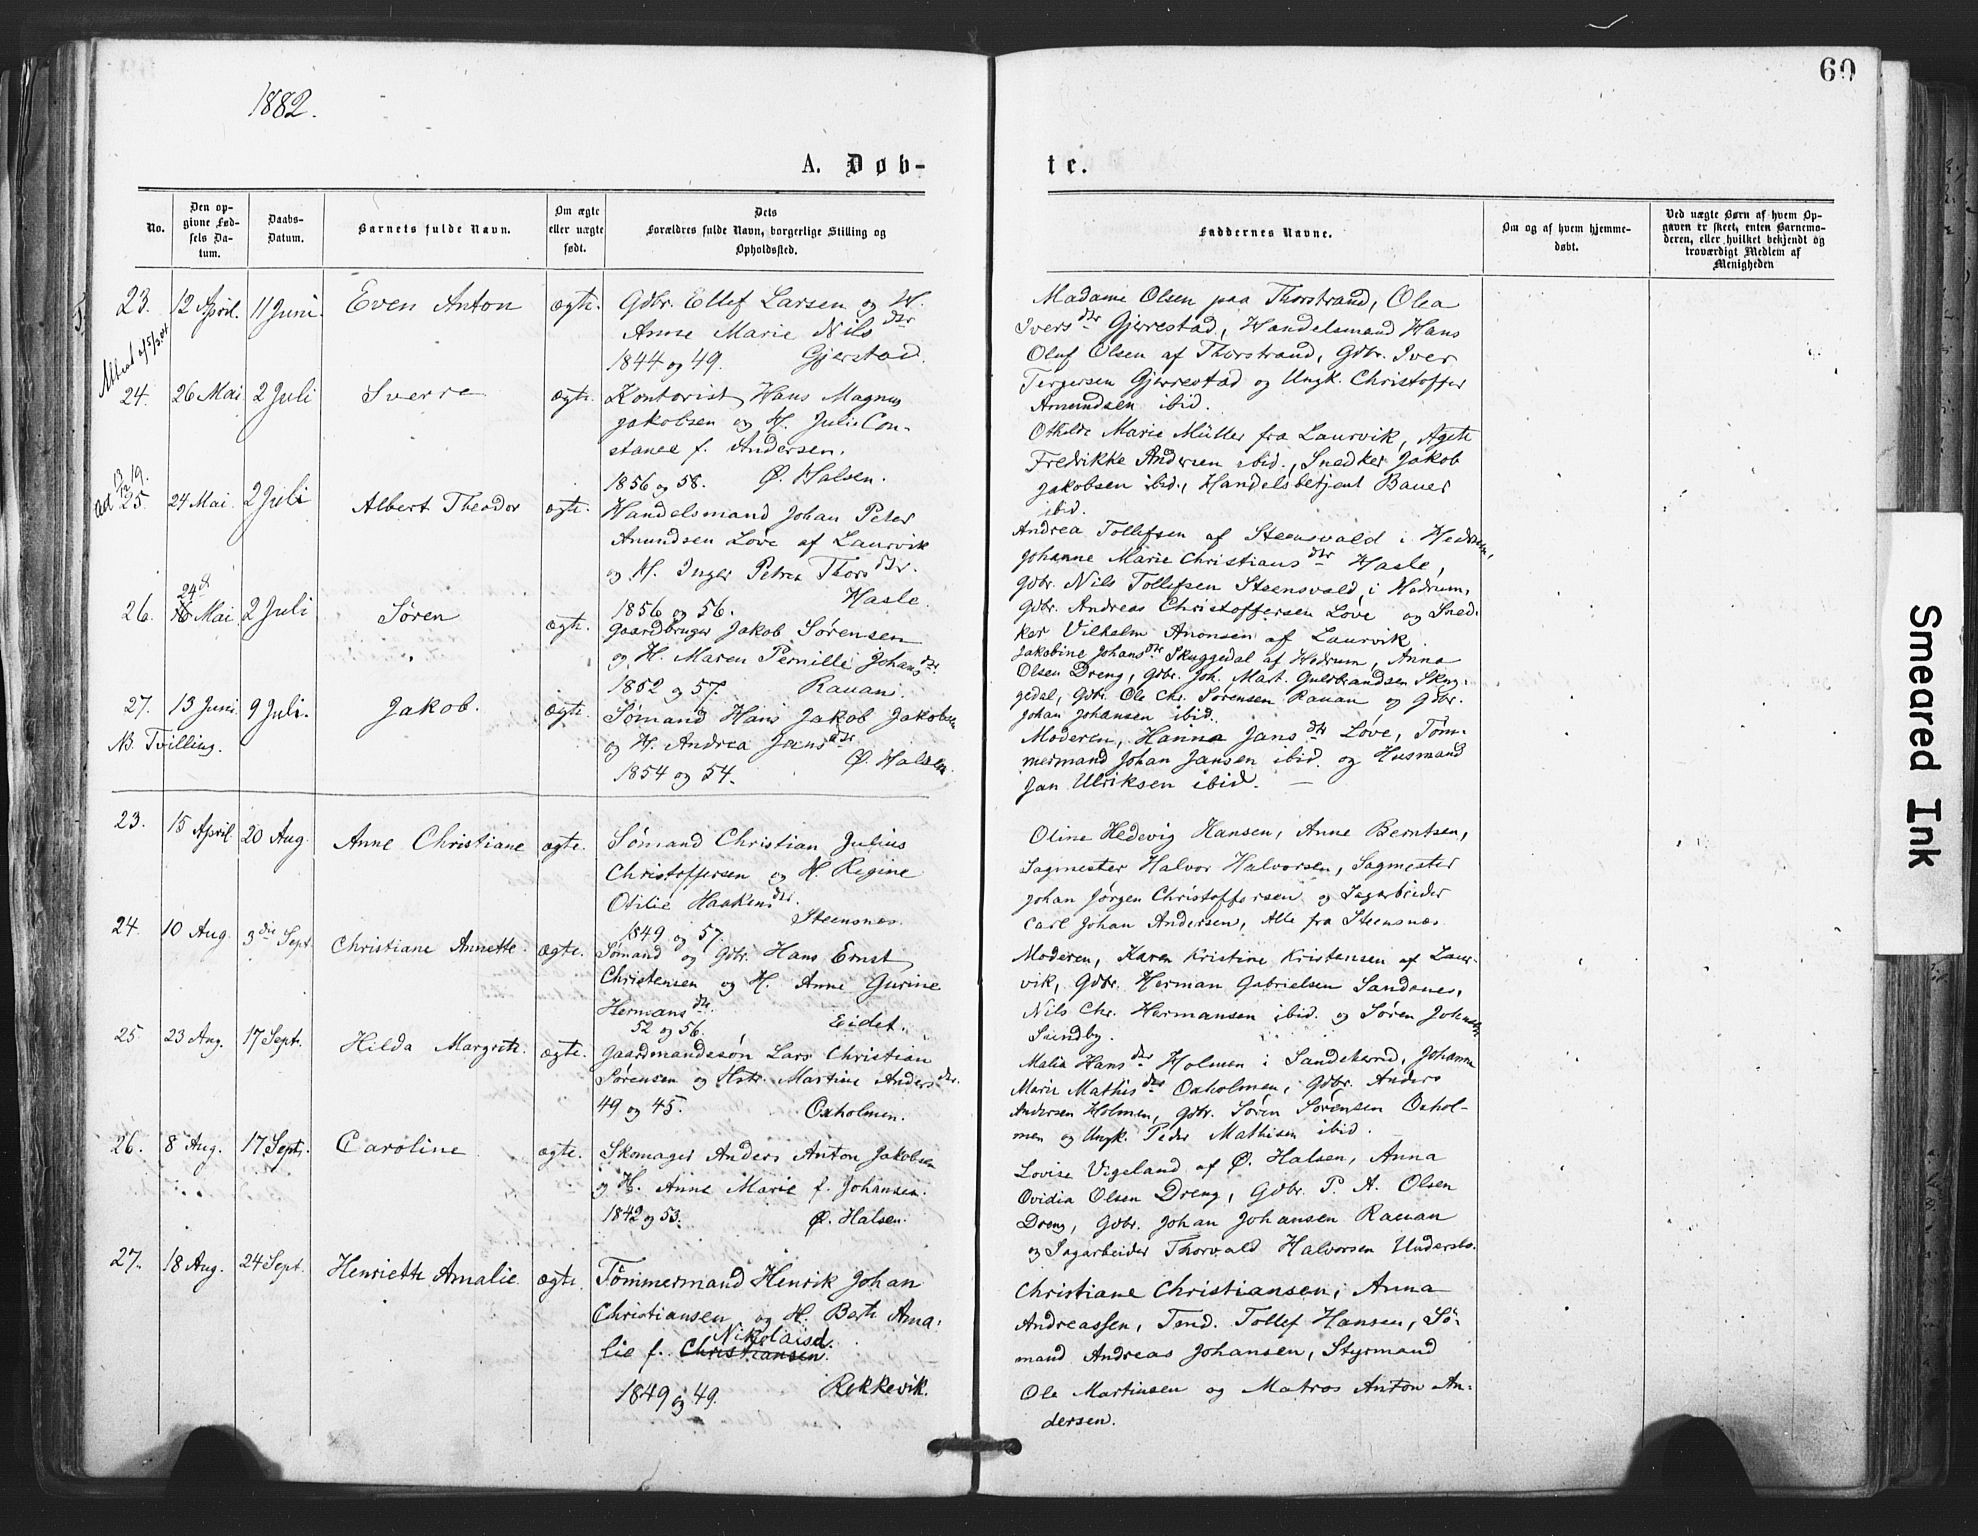 1882.
60
A. Døb-
te.
No.
Den op-
givne Fød-
sels Da-
tum.
Daabs-
Datum.
Barnets fulde Navn.
Om ægte
eller uægte
født.
Dets
Forældres fulde Navn, borgerlige Stilling og
Opholdssted.
Faddernes Navne.
Om og af hvem hjemme-
døbt.
Ved uægte Børn af hvem Op-
gaven er skeet, enten Barnemo-
deren, eller hvilket bekjendt og
troværdigt Medlem af
Menigheden
23. 12 April. 11 Juni. Even Anton ægte. Gdbr. Ellef Larsen og H.
Anne Marie Nilsdtr
1844 og 49. Gjerstad.
Madame Olsen paa Thorstrand, Olea
Iversdtr Gjerrestad, Handelsmand Hans
Oluf Olsen af Thorstrand, Gdbr. Iver
Tergersen Gjerrestad og Ungk. Christoffer
Amundsen ibid.
24. 26 Mai 2 Juli Sverre ægte. Kontorist Hans Magnus
Jakobsen og H. Julie Con-
stance f. Andersen.
1856 og 58. Ø. Halsen.
Othilde Marie Müller fra Laurvik, Agete
Fredrikke Andersen ibid., Snedker Jakob
Jakobsen ibid., Handelsbetjent Bauer
ibid.
25. 24 Mai 2 Juli Albert Theodor ægte. Handelsmand Johan Peter
Anundsen Løve af Laurvik
og H. Inger Petrea Thorsdtr.
1856 og 56. Hasle.
Andrea Tollefsen af Steensvald i Hedrum,
Johanne Marie Christiansdtr Hasle,
Gdbr. Nils Tollefsen Steensvald, i Hedrum,
Gdbr. Andreas Christoffersen Løve og Sned-
ker Vilhelm Anonsen af Laurvik
26. 24de Mai 2 Juli Søren ægte. Gaardbruger Jakob Sørensen
og H. Maren Pernille Johansdtr
1852 og 57. Rauan.
Jakobine Johansdtr Skuggedal af Hedrum, Anna
Olsen Dreng, Gdbr. Joh. Mart. Guldbrandsen Skug-
gedal, Gdbr. Ole Chr. Sørensen Rauan og Gdbr.
Johan Johansen ibid.
27. 13 Juni 9 Juli. Jakob. ægte. Sømand Hans Jakob Jakobsen
NB. Tvilling. og H. Andrea Jansdtr
1854 og 54. Ø. Halsen.
Moderen, Hanna Jansdtr Løve, Tøm-
mermand Johan Jansen ibid. og Husmand
Jan Ulriksen ibid.
23. 15 April. 20 Aug. Anne Christiane ægte. Sømand Christian Julius
Christoffersen og H. Regine
Otilie Haakensdtr.
1849 og 57. Steensnæs
Oline Hedevig Hansen, Anne Berntsen,
Sagmester Halvor Halvorsen, Sagmester
Johan Jørgen Christoffersen og Sagarbeider
Carl Johan Andersen, Alle fra Steensnæs
24. 10 Aug. 3die Sept. Christiane Annette. ægte. Sømand og Gdbr. Hans Ernst
Christensen og H. Anne Gurine
Hermansdtr.
52 og 56. Eidet.
Moderen, Karen Kristine Kristensen af Laur-
vik, Gdbr. Herman Gabrielsen Sandanes,
Nils Chr. Hermansen ibid. og Søren Johnsen
Sundby.
25. 23 Aug. 17 Sept. Hilda Margrete. ægte. Gaardmandssøn Lars Christian
Sørensen og Hstr. Martine Andersdtr.
49 og 45. Oxholmen.
Malia Hansdtr Holmen i Sandeherred, Johanne
Marie Mathisdtr Oxholmen, Gdbr. Anders
Andersen Holmen, Gdbr. Søren Sørensen Oxhol-
men og Ungk. Peder Mathisen ibid.
26. 8 Aug. 17 Sept. Caroline ægte. Skomager Anders Anton Jakobsen
og H. Anne Marie f. Johansen.
1842 og 53. Ø. Halsen.
Lovise Vigeland af Ø. Halsen, Anna
Ovidia Olsen Dreng, Gdbr. P. A. Olsen
Dreng, Gdbr. Johan Johansen Rauan
og Sagarbeider Thorvald Halvorsen Undersbo.
27. 18 Aug. 24 Sept. Henriette Amalie. ægte. Tømmermand Henrik Johan
Christiansen og H. Berte Ama-
lie f. Christiansen. Nikolaisd.
1849 og 49. Rekkevik.
Christiane Christiansen, Anna
Andreassen, Tend. Tollef Hansen, Sø-
mand Andreas Johansen, Styrmand
Ole Martinsen og Matros Anton An-
dersen.
Smeared Ink